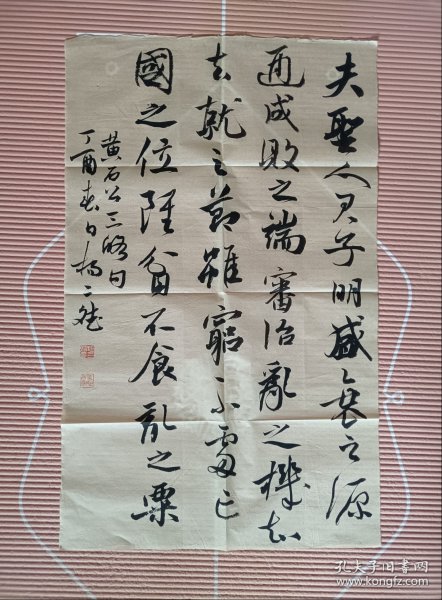 夫聖人君子明盛衰之源
通成敗之端審治亂之機知
去就之節雖窮不處亡
國之位雖貧不食亂之粟
黄石公三略句
丁酉春日楊二
孔夫子旧书网
www.kongfz.com